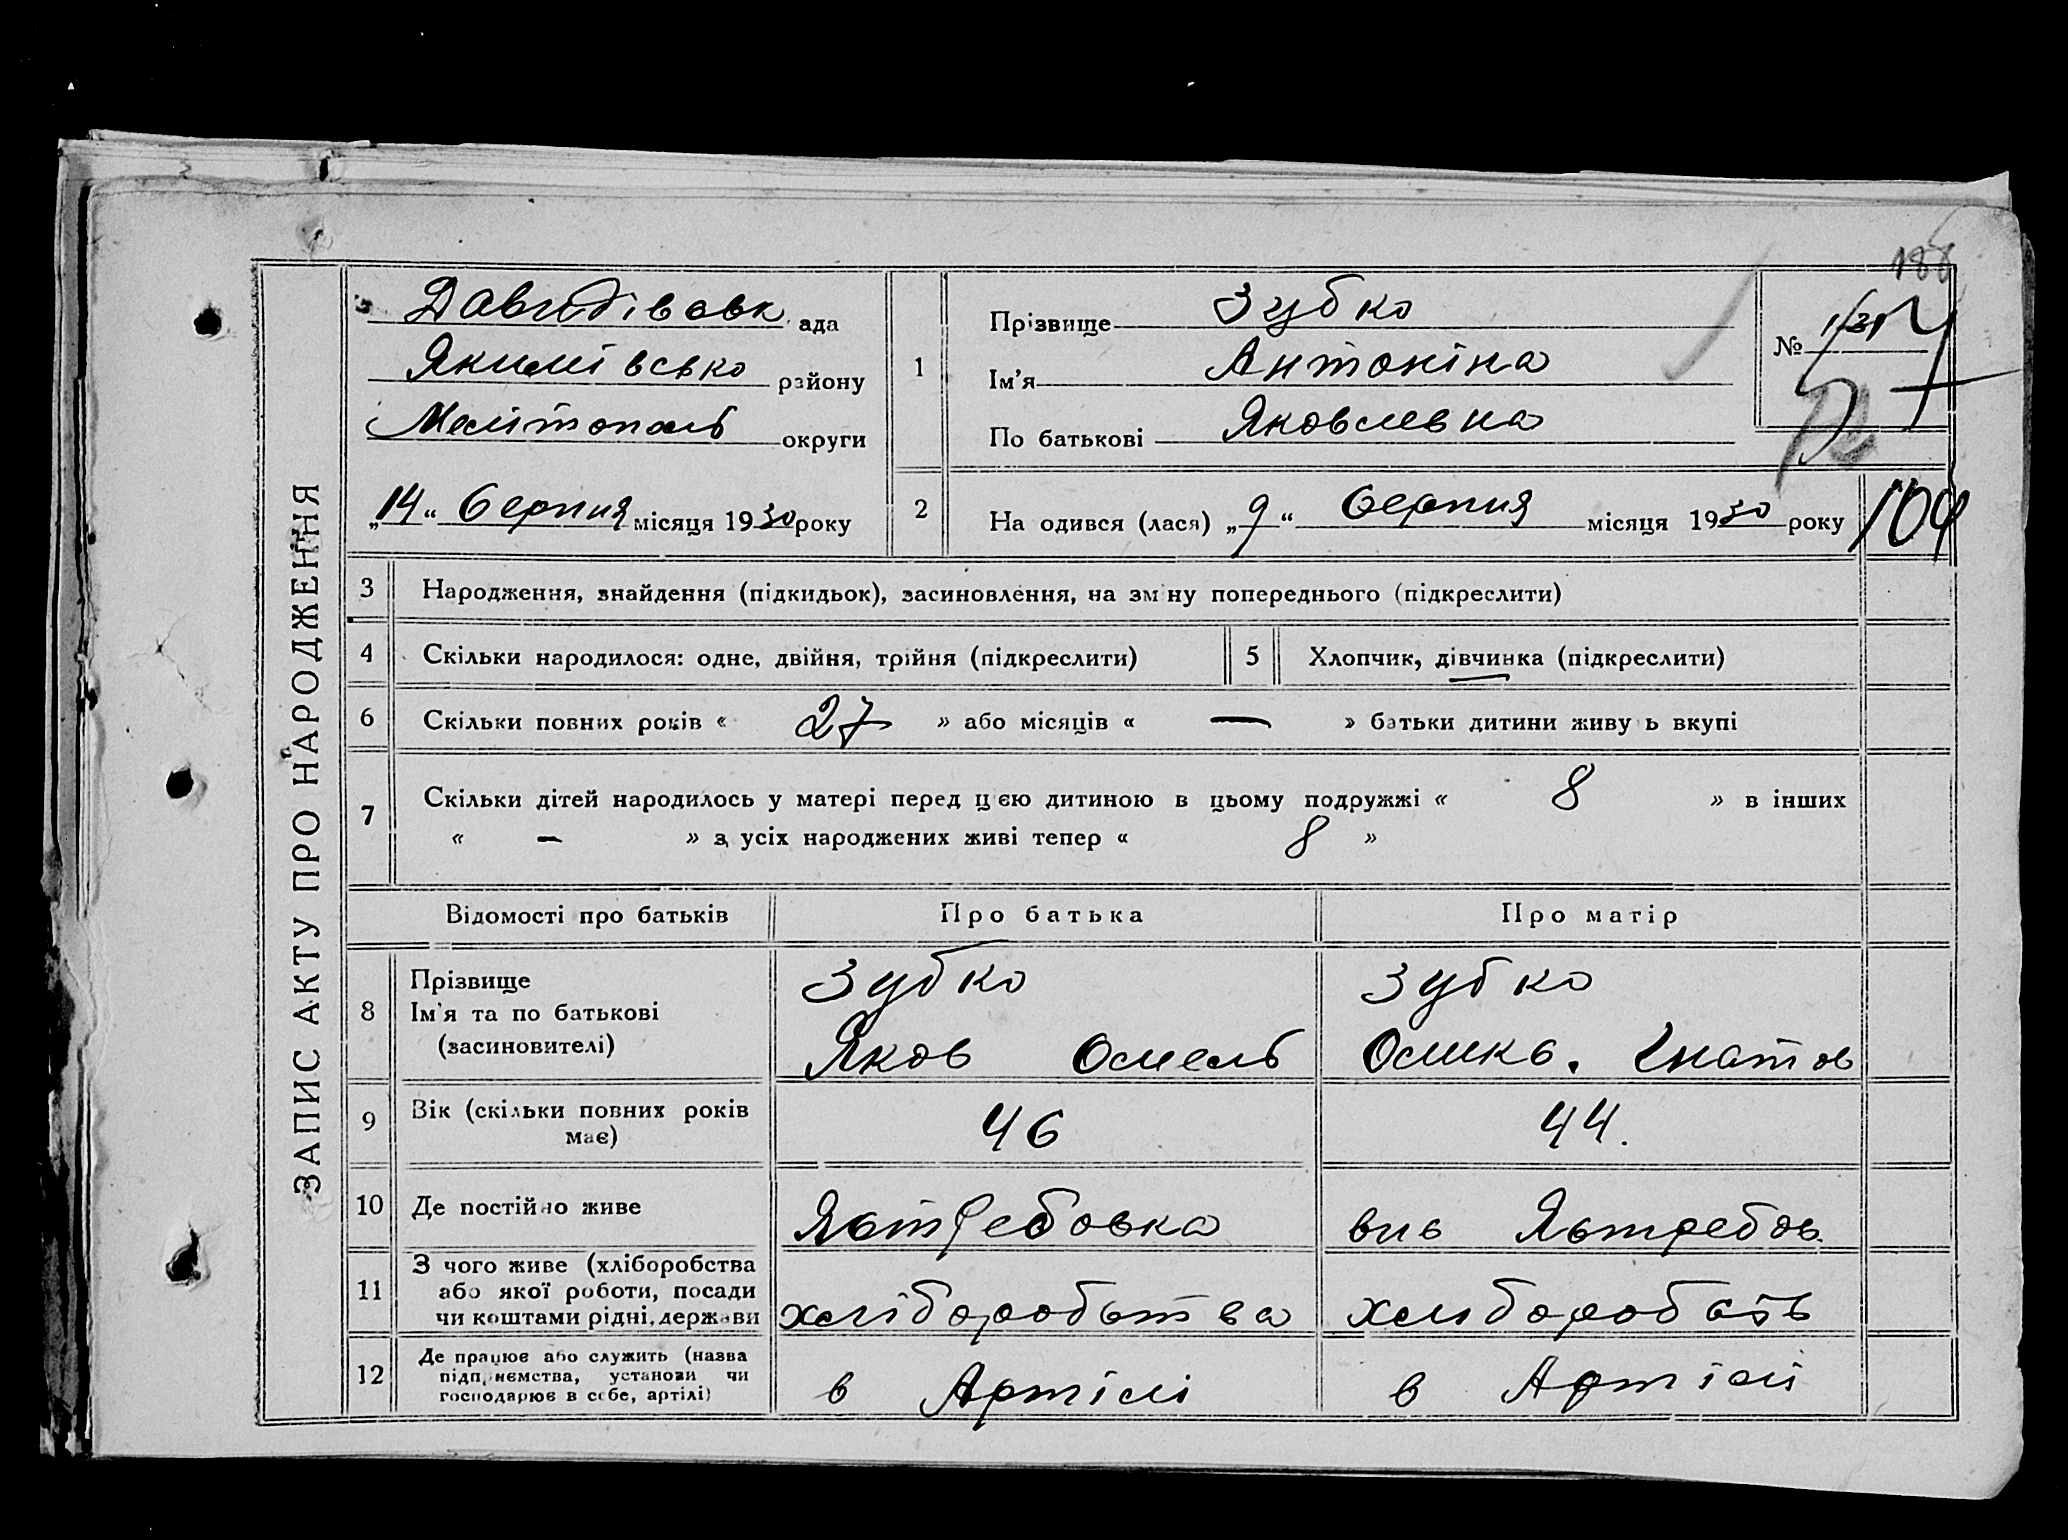 ЗАПИС АКТУ ПРО НАРОДЖЕННЯ
188
Давидівськ ада
Якимівсько району
Мелітополь округи
„14“ Серпня місяця 1930 року
1
Прізвище Зубко
Ім'я Антоніна
По батькові Яковлевна
№
2
На одився (лася) „9“ Серпня місяця 1930 року
104
3 Народження, знайдення (підкидьок), засиновлення, на зм ну попереднього (підкреслити)
4 Скільки народилося: одне, двійня, трійня (підкреслити)
5 Хлопчик, дівчинка (підкреслити)
6 Скільки повних років « 27 » або місяців « — » батьки дитини живу ь вкупі
7 Скільки дітей народилось у матері перед цією дитиною в цьому подружжі « 8 » в інших
« – » з усіх народжених живі тепер « 8 »
Відомості про батьків Про батька Про матір
8 Прізвище
Ім'я та по батькові
(засиновителі)
Зубко
Яков Омель
Зубко
Олик. Гнатов
9 Вік (скільки повних років
має)
46
44.
10 Де постійно живе
Ястребовка
вив Ястребов
11 З чого живе (хліборобства
або якої роботи, посади
чи коштами рідні, держави
хліборобства
хліборобств
12 Де працює або служить (назва
підприємства, установи чи
господарює в себе, артілі)
в Артілі
в Артілі